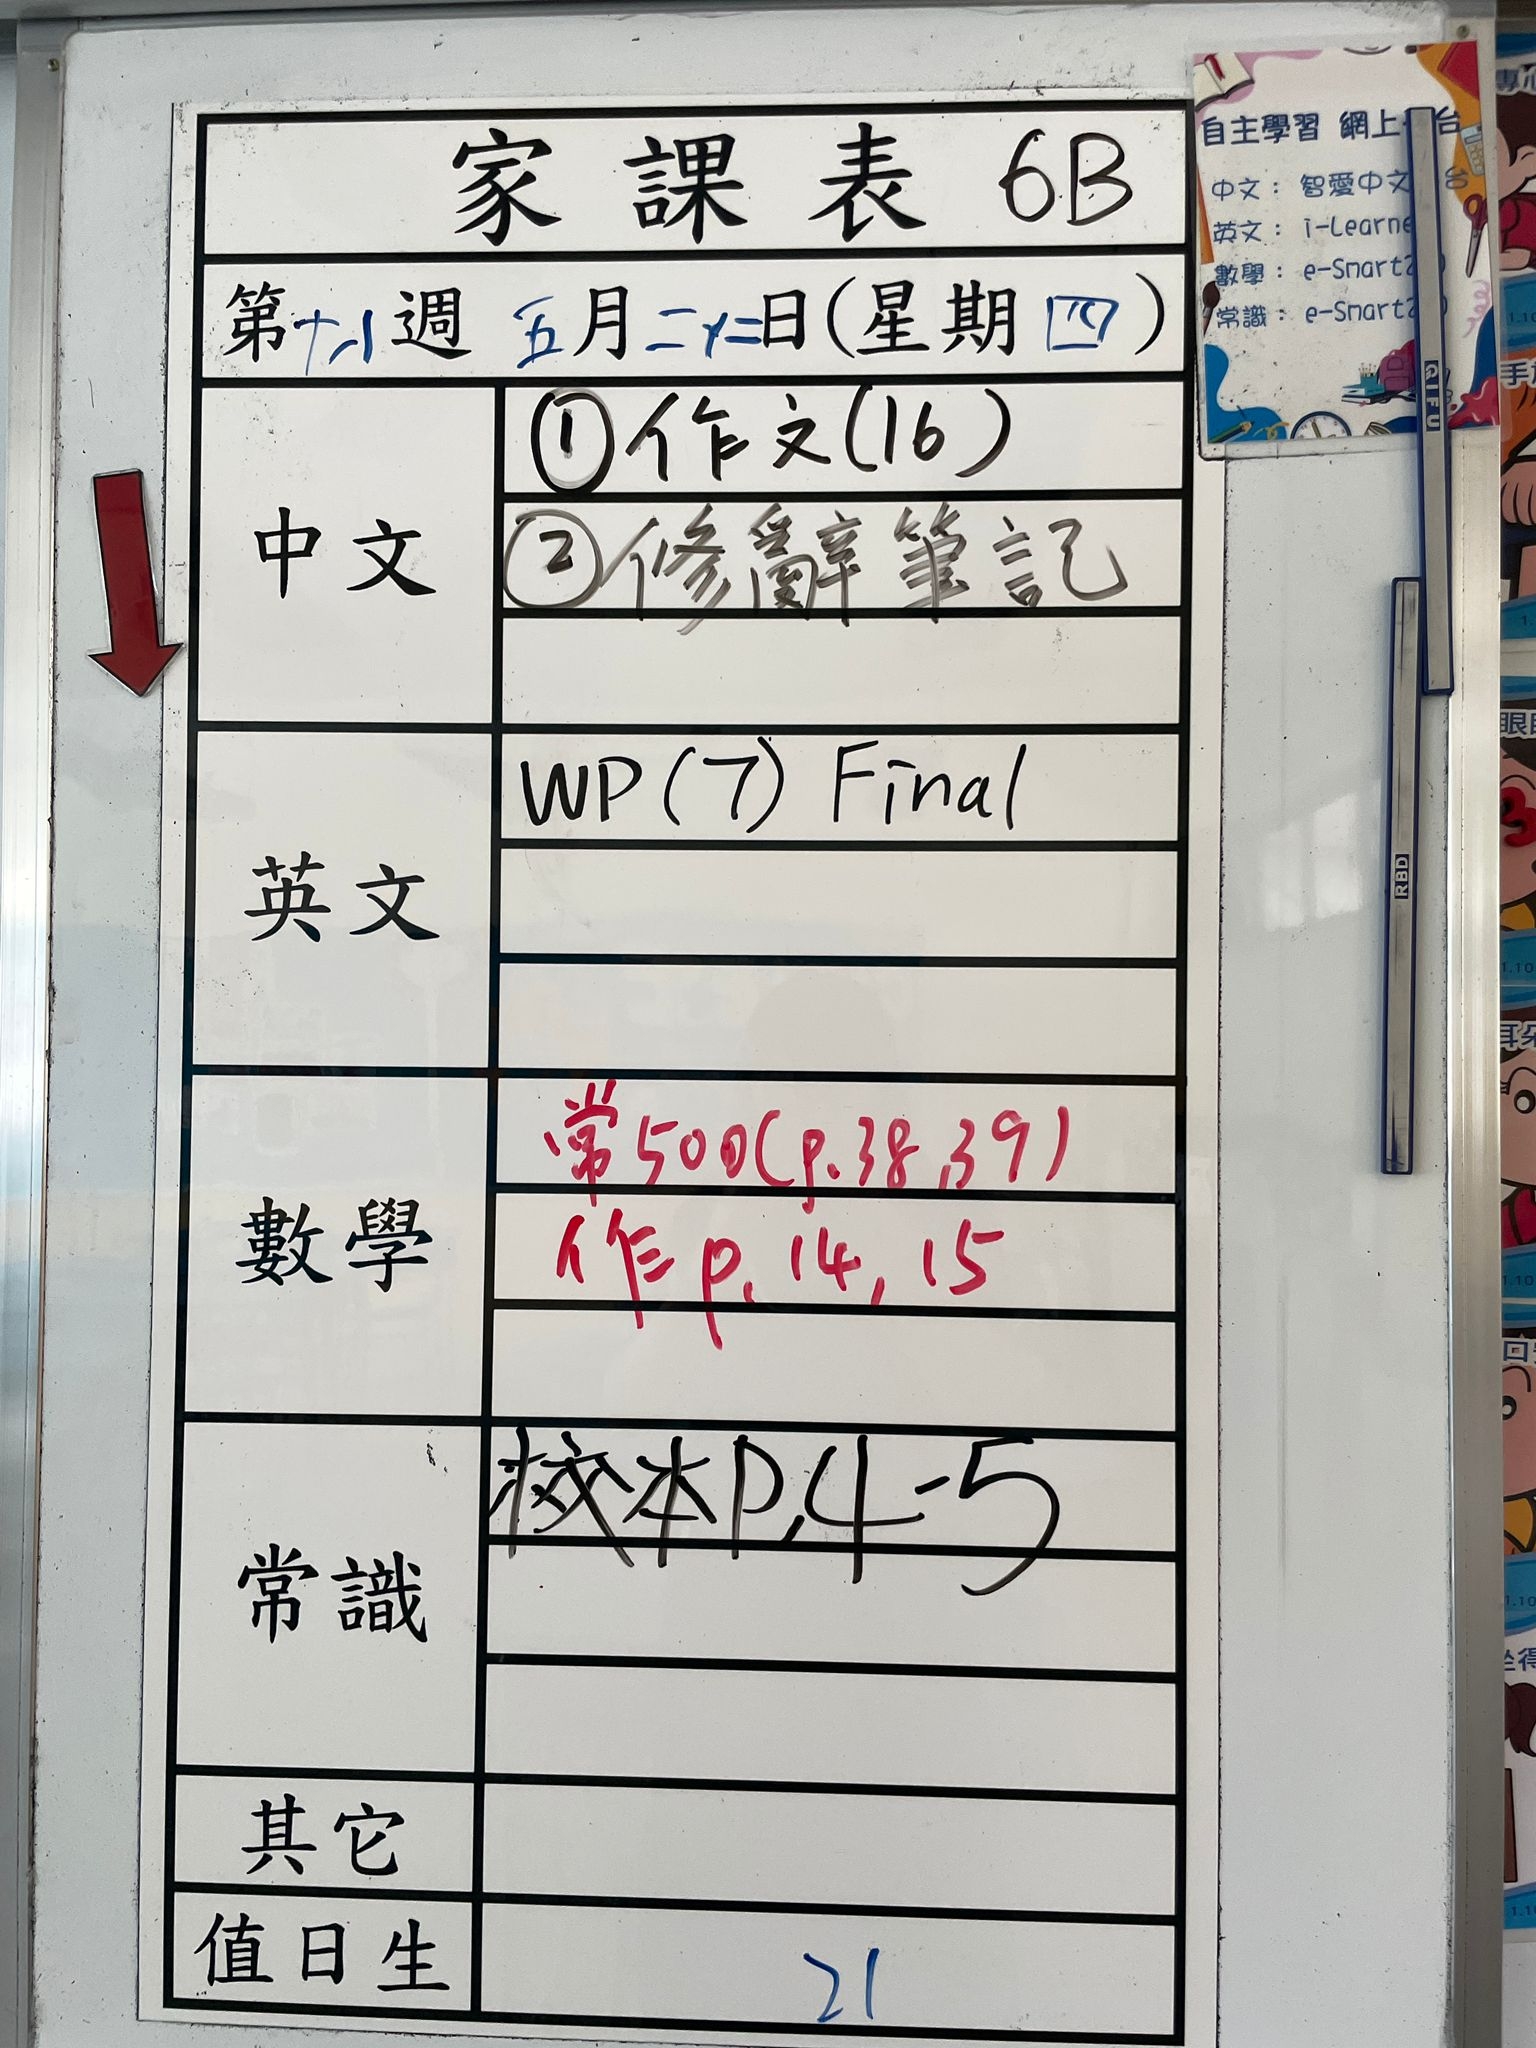 家課表 6B
第十八週 五月二十二日(星期四)
中文
①作文(16)
②修辭筆記
英文
WP(7) Final
數學
常500(p.38,39)
作p.14,15
常識
校本P.4-5
其它
值日生
21
自主學習 網上 台
中文： 智愛中文 台
英文： i-Learne
數學： e-Smart2 0
常識： e-Smart2 0
QIFU
RBD